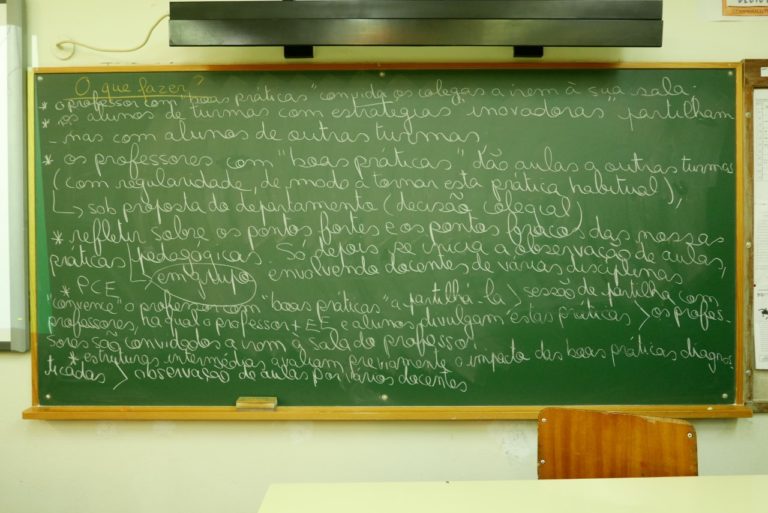 O que fazer?
* o professor com "boas práticas" convida os colegas a irem à sua sala.
* os alunos de turmas com estratégias "inovadoras" partilham
-nas com alunos de outras turmas
* os professores com "boas práticas" dão aulas a outras turmas
(com regularidade, de modo a tornar esta prática habitual),
↳ sob proposta do departamento (decisão colegial)
* refletir sobre os pontos fortes e os pontos fracos das nossas
práticas pedagógicas. Só depois se inicia a observação de aulas,
↳ em grupo envolvendo docentes de várias disciplinas
* PCE
"convence" o professor com "boas práticas" a partilhá-la > sessão de partilha com
professores, na qual o professor + EE e alunos divulgam estas práticas > os profes-
sores são convidados a irem à sala do professor.
* estruturas intermédias avaliam previamente o impacto das boas práticas diagnos-
ticadas > observação de aulas por vários docentes